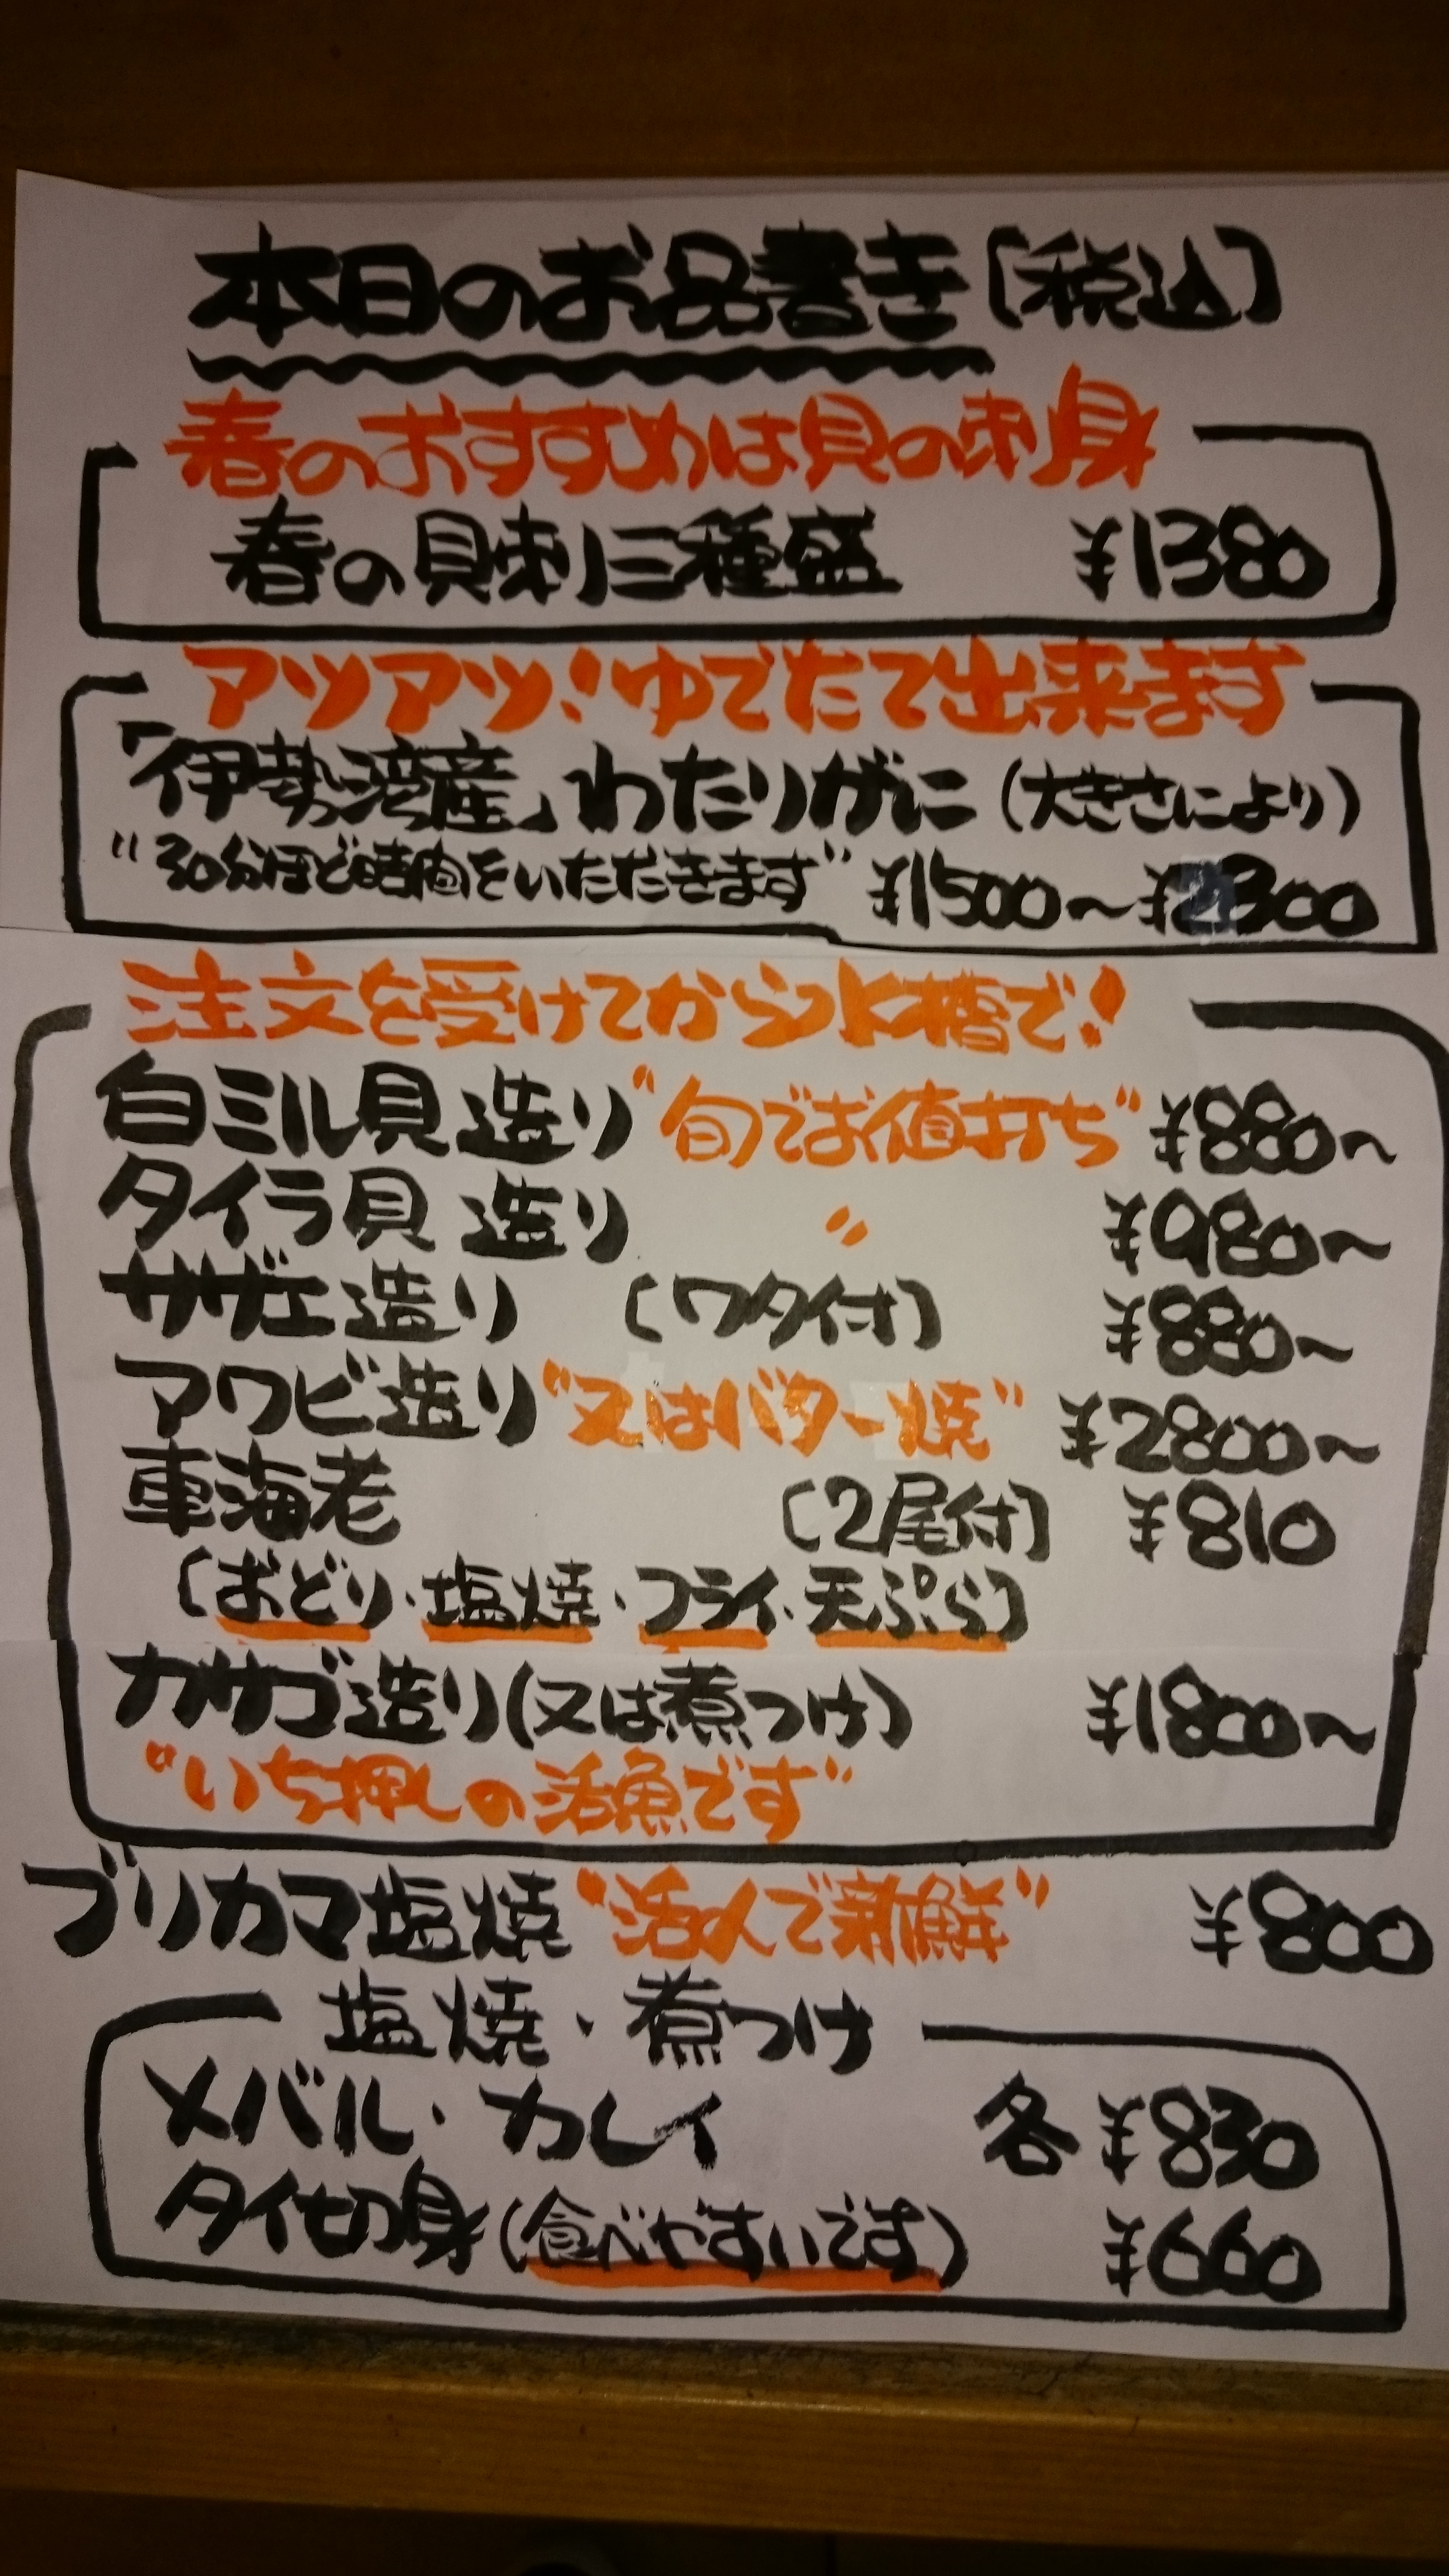 本日のお品書き[税込]
春のおすすめは貝の刺身
春の貝刺三種盛 ¥1380
アツアツ!ゆでたて出来ます
「伊勢湾産」わたりがに(大きさにより)
"30分ほど時間をいただきます" ¥1500〜¥2300
注文を受けてから水槽で!
白ミル貝造り"旬でお値打ち" ¥880〜
タイラ貝造り 〃 ¥980〜
サザエ造り [ワタ付] ¥880〜
アワビ造り"又はバター焼" ¥2800〜
車海老 [2尾付] ¥810
[おどり・塩焼・フライ・天ぷら]
カサゴ造り(又は煮つけ) ¥1800〜
"いち押しの活魚です"
ブリカマ塩焼"活〆で新鮮" ¥800
塩焼・煮つけ
メバル・カレイ 各¥830
タイ切身(食べやすいです) ¥660